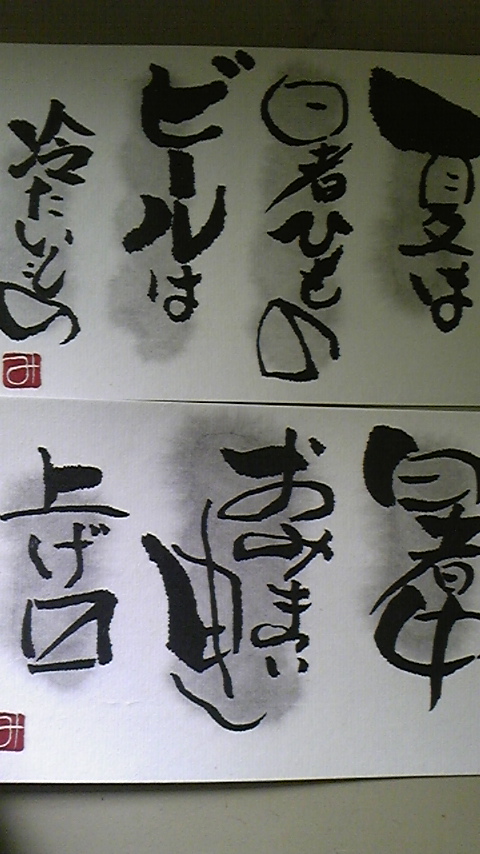 夏は
暑いもの
ビールは
冷たいもの
み
暑中
おみまい
申し
上げ〼
み